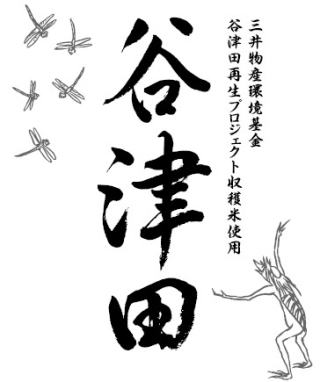 三井物産環境基金
谷津田再生プロジェクト収穫米使用
谷津田